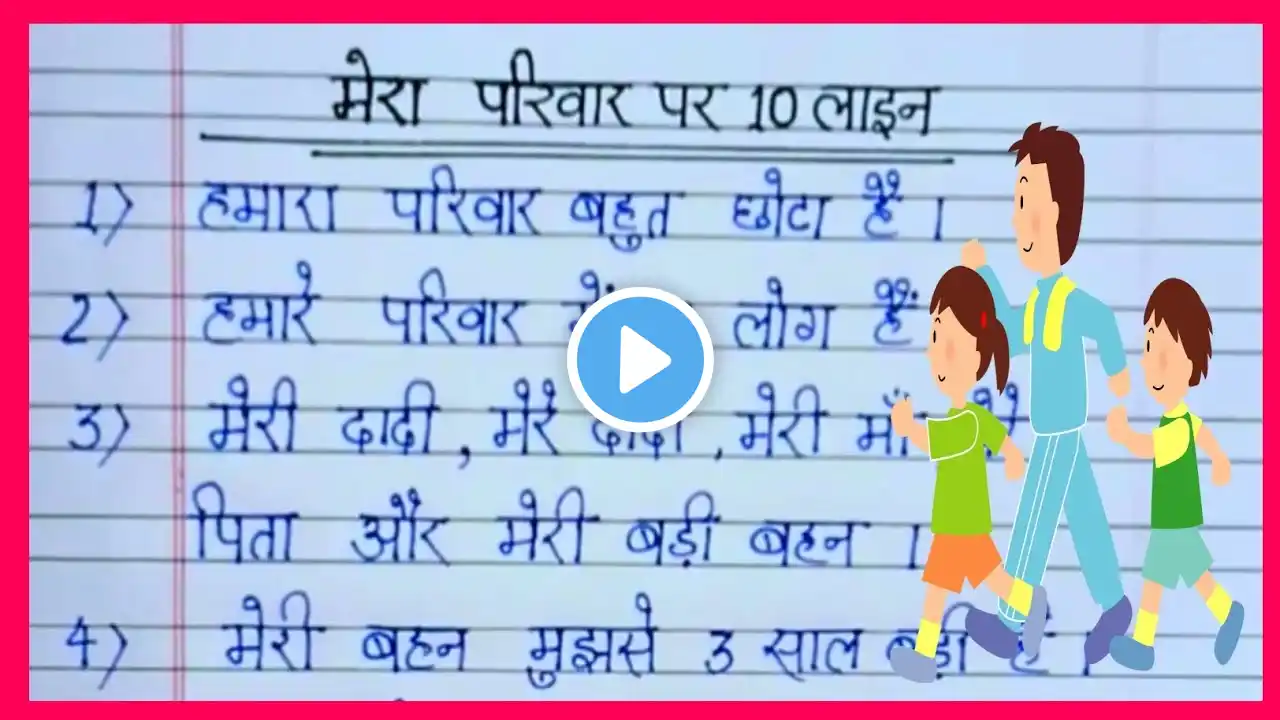 मेरा परिवार पर 10 लाइन
1) हमारा परिवार बहुत छोटा है ।
2) हमारे परिवार में लोग हैं
3) मेरी दादी , मेरे दादा , मेरी माँ
पिता और मेरी बड़ी बहन ।
4) मेरी बहन मुझसे 3 साल बड़ी है ।